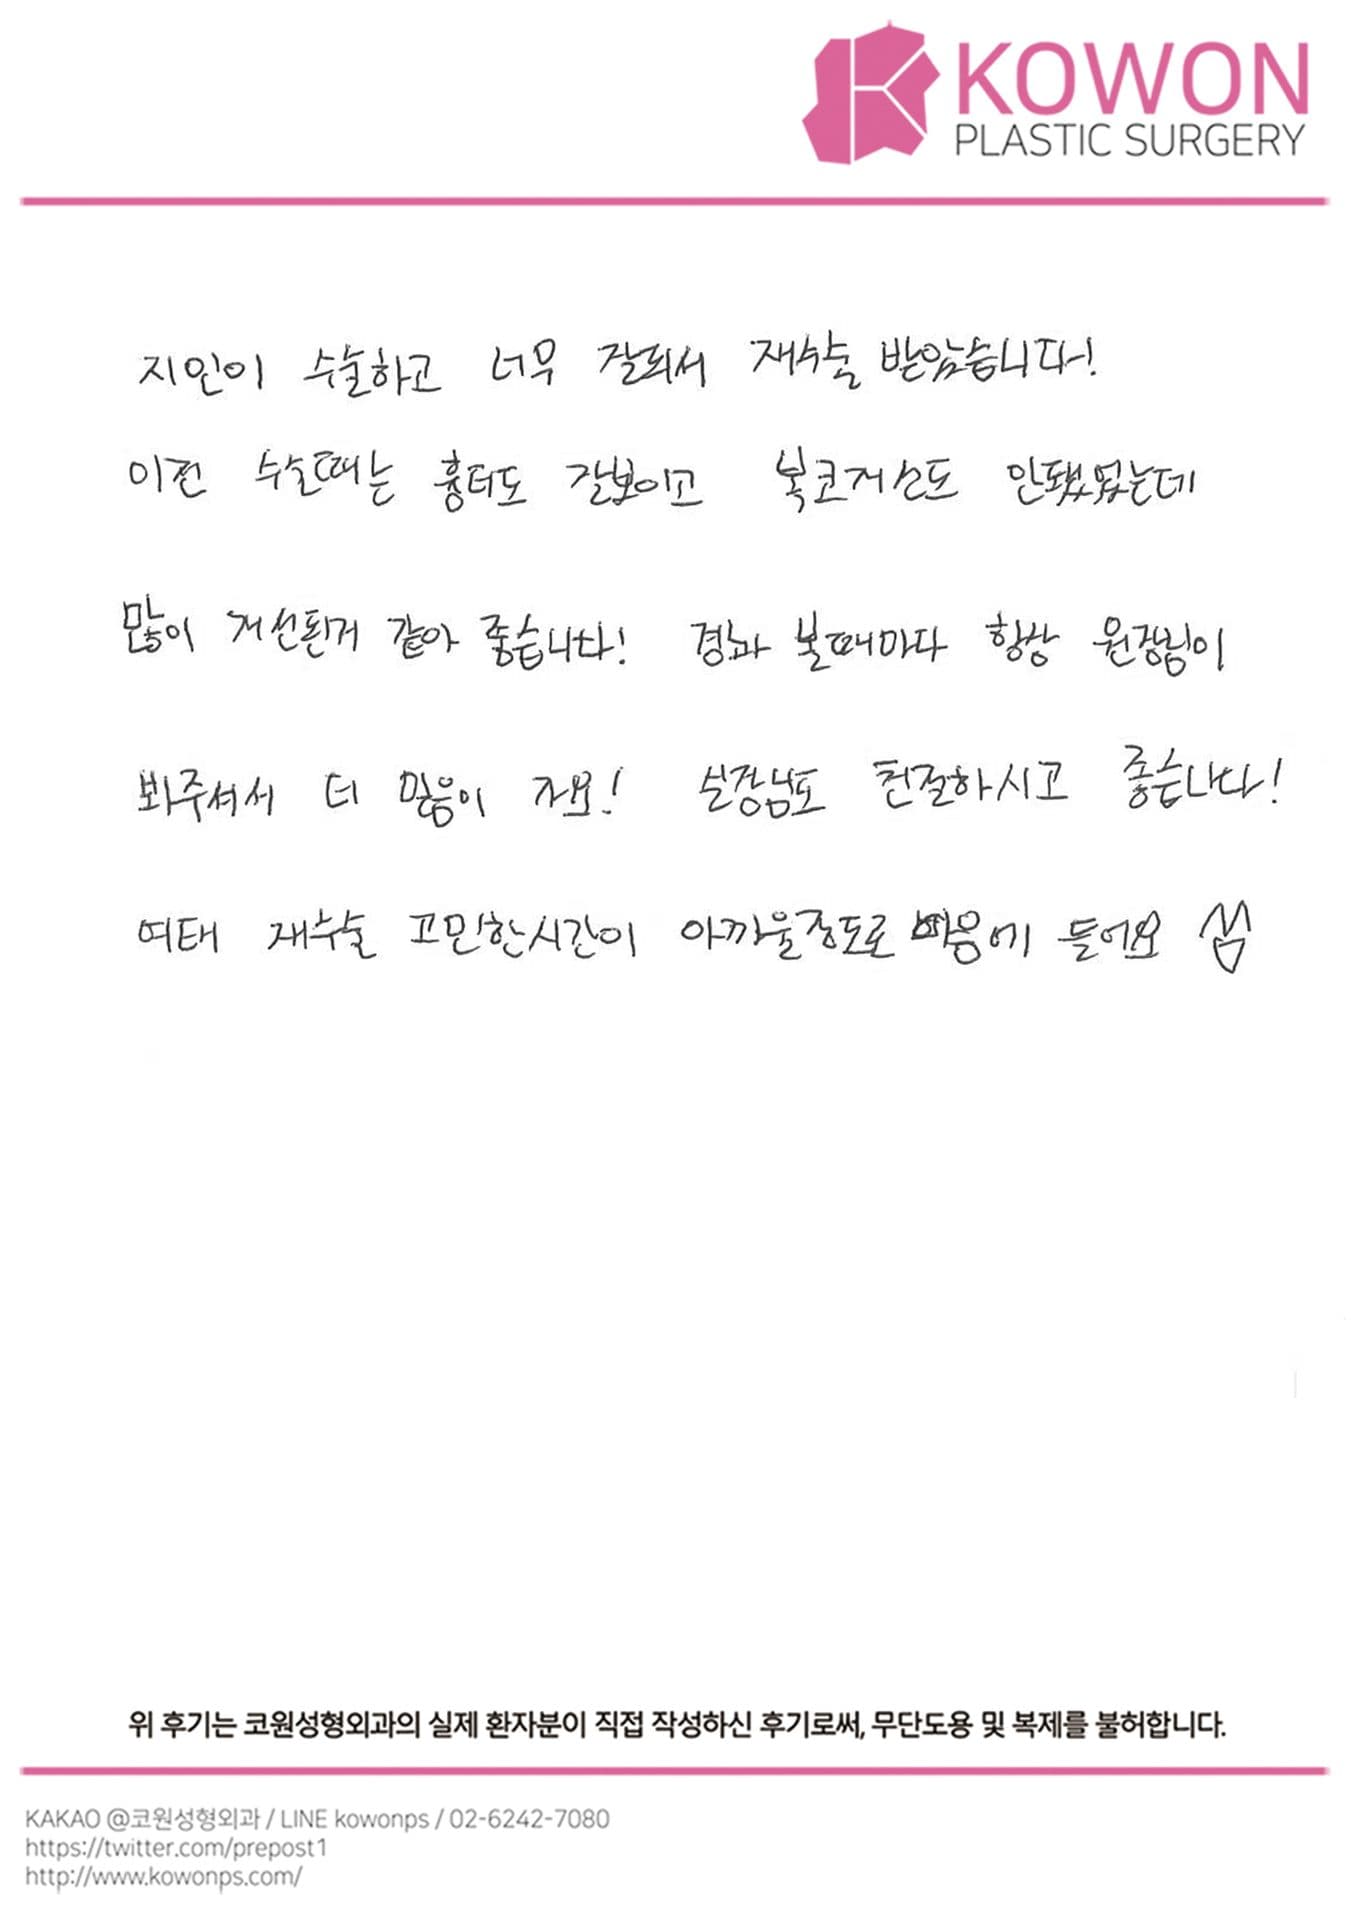 KOWON
PLASTIC SURGERY
지인이 수술하고 너무 잘되서 재수술 받았습니다!
이전 수술때는 흉터도 잘보이고 복코개선도 안됐었는데
많이 개선된거 같아 좋습니다! 경과 볼때마다 항상 원장님이
봐주셔서 더 믿음이 가요! 실장님도 친절하시고 좋습니다!
여태 재수술 고민한시간이 아까울정도로 마음에 들어요
위 후기는 코원성형외과의 실제 환자분이 직접 작성하신 후기로써, 무단도용 및 복제를 불허합니다.
KAKAO @코원성형외과 / LINE kowonps / 02-6242-7080
https://twitter.com/prepost1
http://www.kowonps.com/